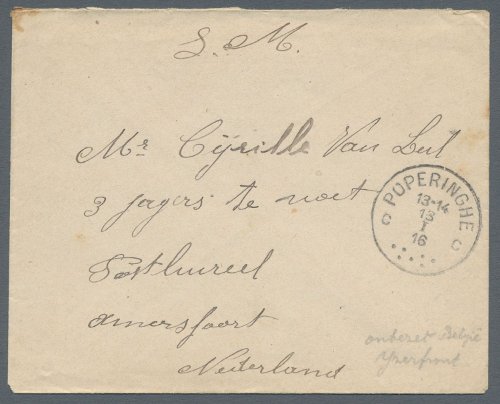 S. M.
Mr Cÿrille Van Beul
3 jagers te voet
Postbureel
Amersfoort
Nederland
POPERINGHE
13-14
13
I
16
C C
onbezet België
Yzerfront